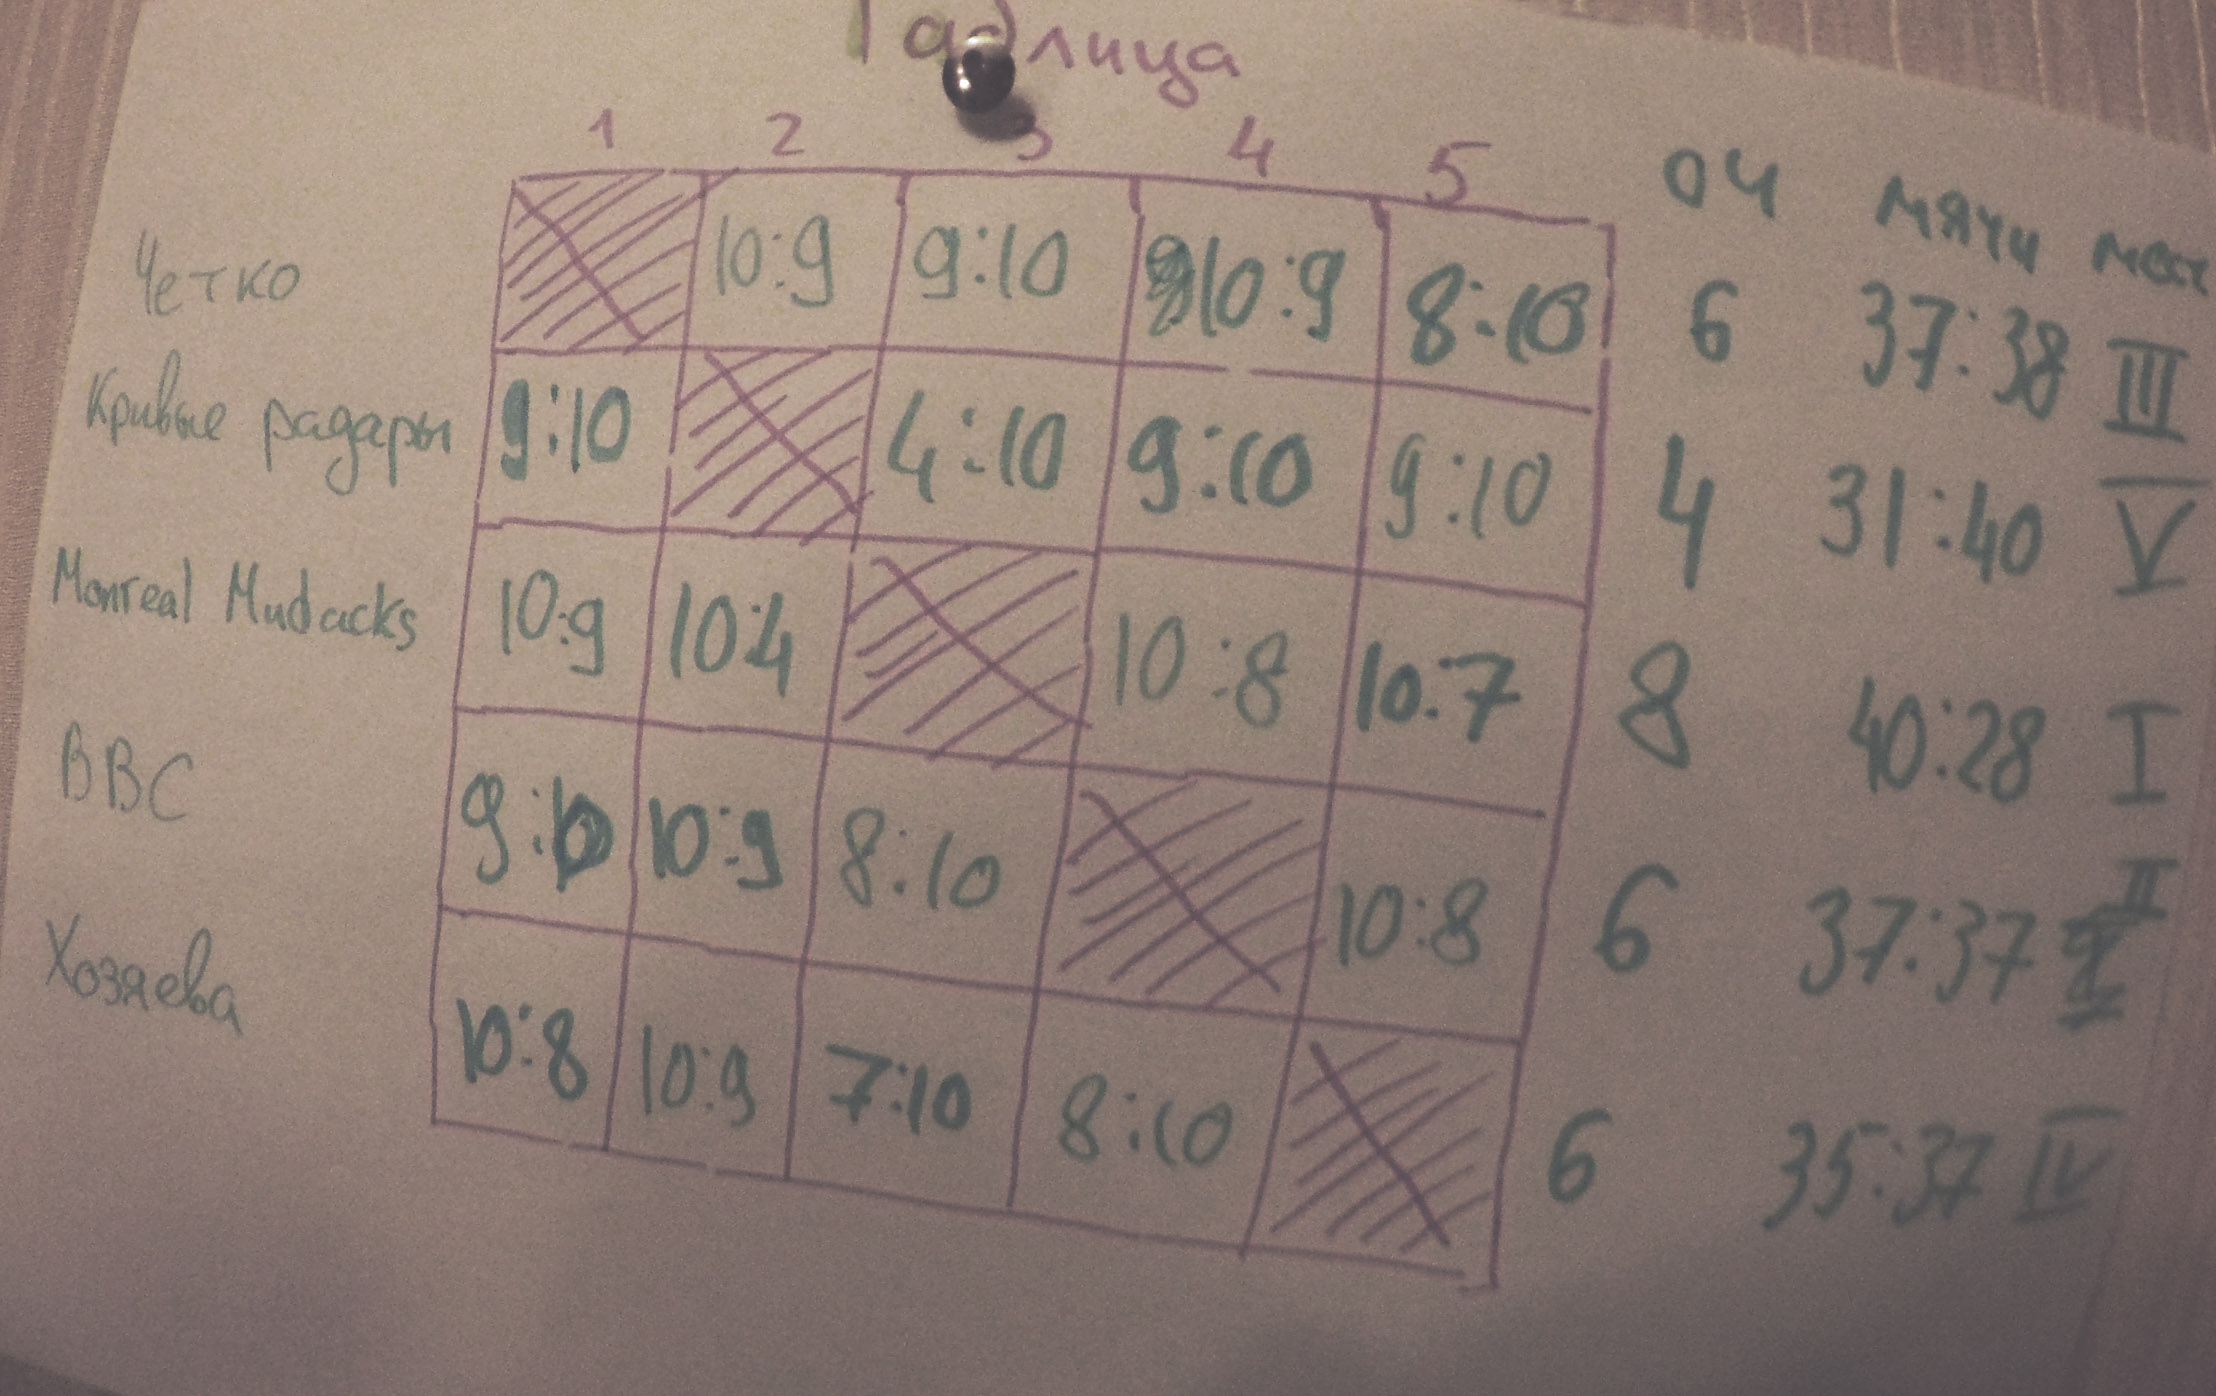 Таблица
1 2 3 4 5 оч мячи мест
Четко 10:9 9:10 10:9 8:10 6 37:38 III
Кривые радары 9:10 4:10 9:10 9:10 4 31:40 V
Monreal Mudacks 10:9 10:4 10:8 10:7 8 40:28 I
ВВС 9:10 10:9 8:10 10:8 6 37:37 II
Хозяева 10:8 10:9 7:10 8:10 6 35:37 IV